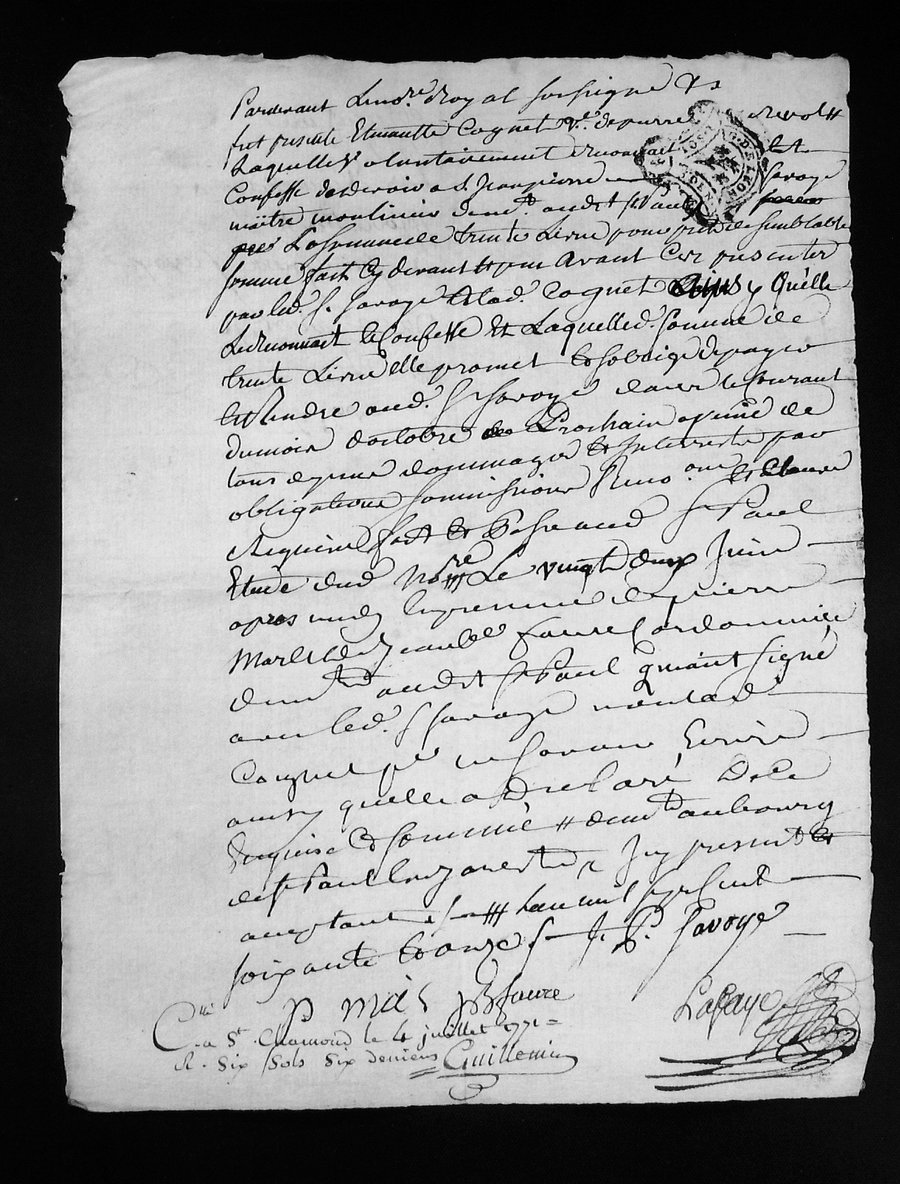 Pardevant Le no.re Royal soussigné &a
fut presente Etiennette Coignet v.e de pierre revol #
Laquelle volontairement reconnait et
Confesse de devoir a S. Jean pierre Savoye
maitre moulinier dem.t audit S.t Paul
La somme de trente Livre pour pret de semblable
somme fait Cy devant et peu avant Ces presentes
par led. S. Savoye a lad. Coignet Ainsy Qu'elle
Le reconnait le Confesse Et Laquelled. somme de
trente Livre elle promet et soblige de payer
et Rendre aud. S. Savoye dans le Courant
du mois doctobre Prochain a peine de
tous depens dommages et Interests par
obligations soumissions Reno.ons et Clauses
Requises fait et Passé aud S.t Paul
Etude dud No.re Le vingt deux Juin
apres midy En presence de pierre
Mas et de Jean B.e faure Cordonnier
dem.t audit S.t Paul qui ont signé
avec led. S. Savoye non lad.
Coignet p.r ne savoir Ecrire
ainsy quelle a Declaré De ce
Enquise et sommée # dem.t au bourg
de S.t Paul Icy presente et
acceptant # Lan mil sept cent
soixante et onze J. P. Savoye
P Mas JB faure
Lafaye
C.lé a S.t Chamond le 4 juillet 1771 =
R. Six sols Six deniers Guillemin